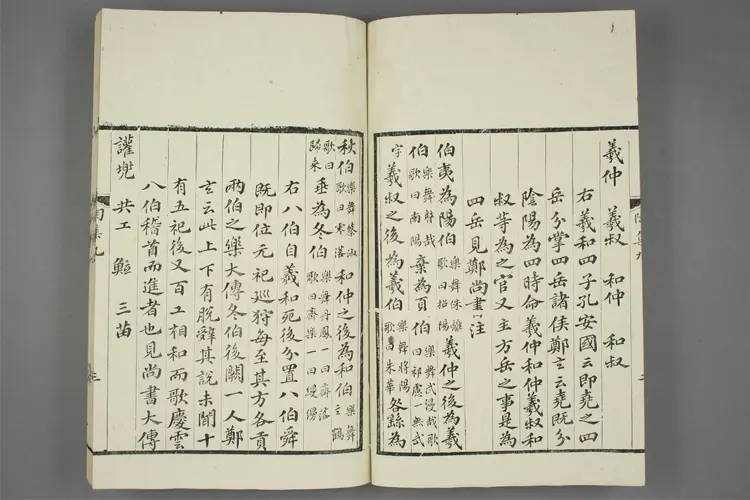 羲仲　羲叔　和仲　和叔
右羲和四子孔安國云即堯之四
岳分掌四岳諸侯鄭玄云堯既分
陰陽為四時命羲仲和仲羲叔和
叔等為之官又主方岳之事是為
四岳見鄭尚書注
伯夷為陽伯樂舞侏離歌曰招陽羲仲之後為羲
伯樂舞鼚哉歌曰南陽棄為夏伯樂舞武漫哉歌曰祁慮一無武
字羲叔之後為羲伯樂舞將陽歌曰朱華咎繇為
秋伯樂舞蔡俶歌曰零落和仲之後為和伯樂舞玄鶴
歌曰歸來垂為冬伯樂舞丹鳳一曰齊落歌曰齊樂一曰縵縵
右八伯自羲和死後分置八伯舜
既即位元祀巡狩每至其方各貢
兩伯之樂大傳冬伯後闕一人鄭
玄云此上下有脫辭其說未聞十
有五祀後又百工相和而歌慶雲
八伯稽首而進者也見尚書大傳
讙兜　共工　鯀　三苗